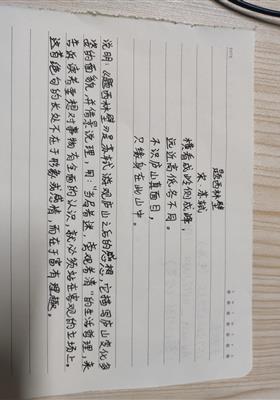 题西林壁
宋 苏轼
横看成岭侧成峰，
远近高低各不同。
不识庐山真面目，
只缘身在此山中。
说明：《题西林壁》是苏轼游观庐山之后的感想，它描写庐山变化多
姿的面貌，并借景说理，用："当局者迷，旁观者清"的生活哲理，来
告诉读者要想对事物有全面的认识，就必须站在客观的立场上。
这首绝句的长处不在于形象或感情，而在于富有理趣。